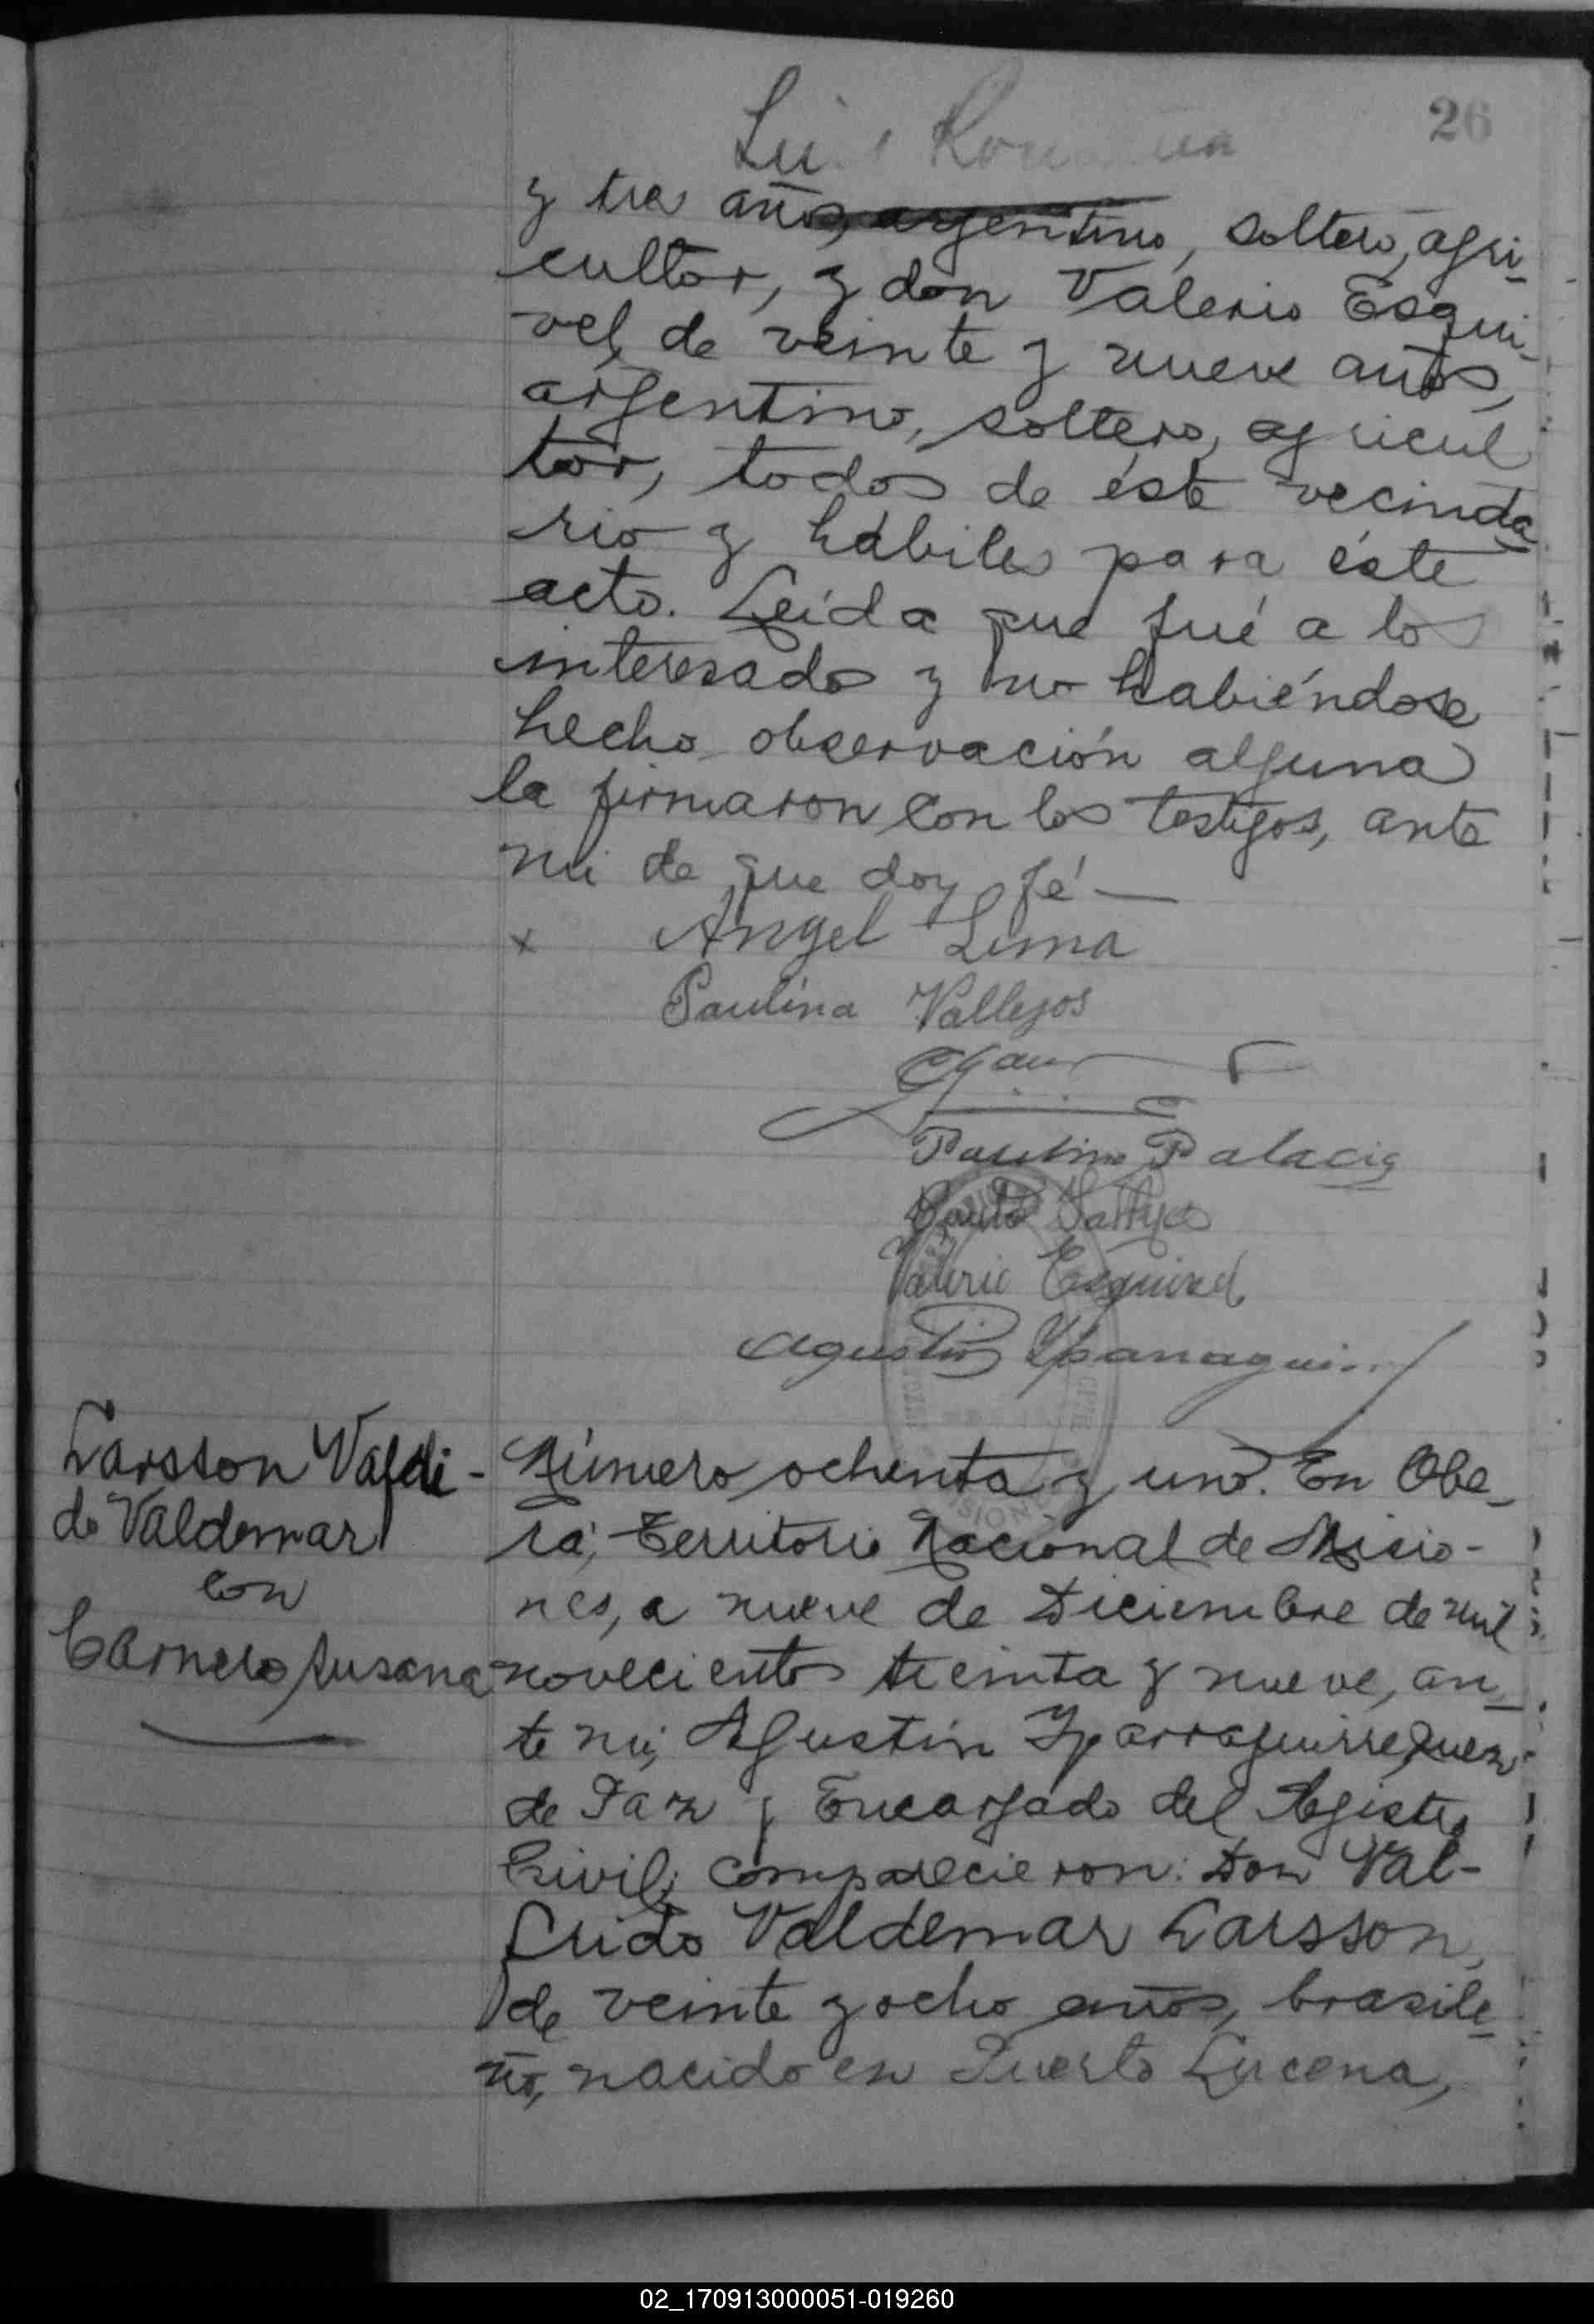 26
y tres años, argentino, soltero, agri-
cultor, y don Valerio Esqui-
vel, de veinte y nueve años,
argentino, soltero, agricul
tor, todos de éste vecinda
rio y hábiles para éste
acto. Leída que fué a los
interesados y no habiéndose
hecho observación alguna
la firmaron con los testigos, ante
mi de que doy fé—
x Angel Lima
Paulina Vallejos
Paulino Palacio
Vallejos
Valerio Esquivel
Agustin Yparraguirre
Larsson Valfri-
do Valdemar
con
Carnero Susana
Número ochenta y uno. En Obe-
rá, Territorio Nacional de Misio-
nes, a nueve de Diciembre de mil
novecientos treinta y nueve, an-
te mi, Agustín Yparraguirre, Juez
de Paz y Encargado del Registro
Civil, comparecieron: Don Val-
frido Valdemar Larsson,
de veinte y ocho años, brasile-
ño, nacido en Puerto Lucena,
02_170913000051-019260